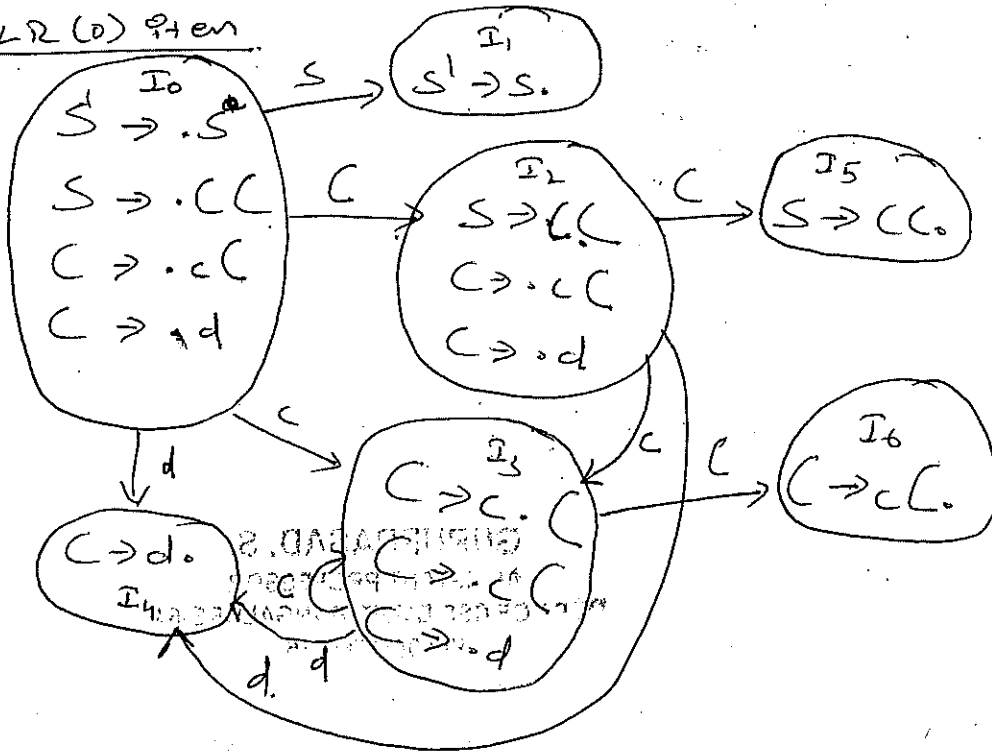 LR (0) item
I0
S' → .S
S → .CC
C → .cC
C → .d
S
I1
S' → S.
C
I2
S → C.C
C → .cC
C → .d
C
I5
S → CC.
c
d
c
I3
C → c.C
C → .cC
C → .d
C
I6
C → cC.
C → d.
I4
d
d.
GURUPRASAD. S